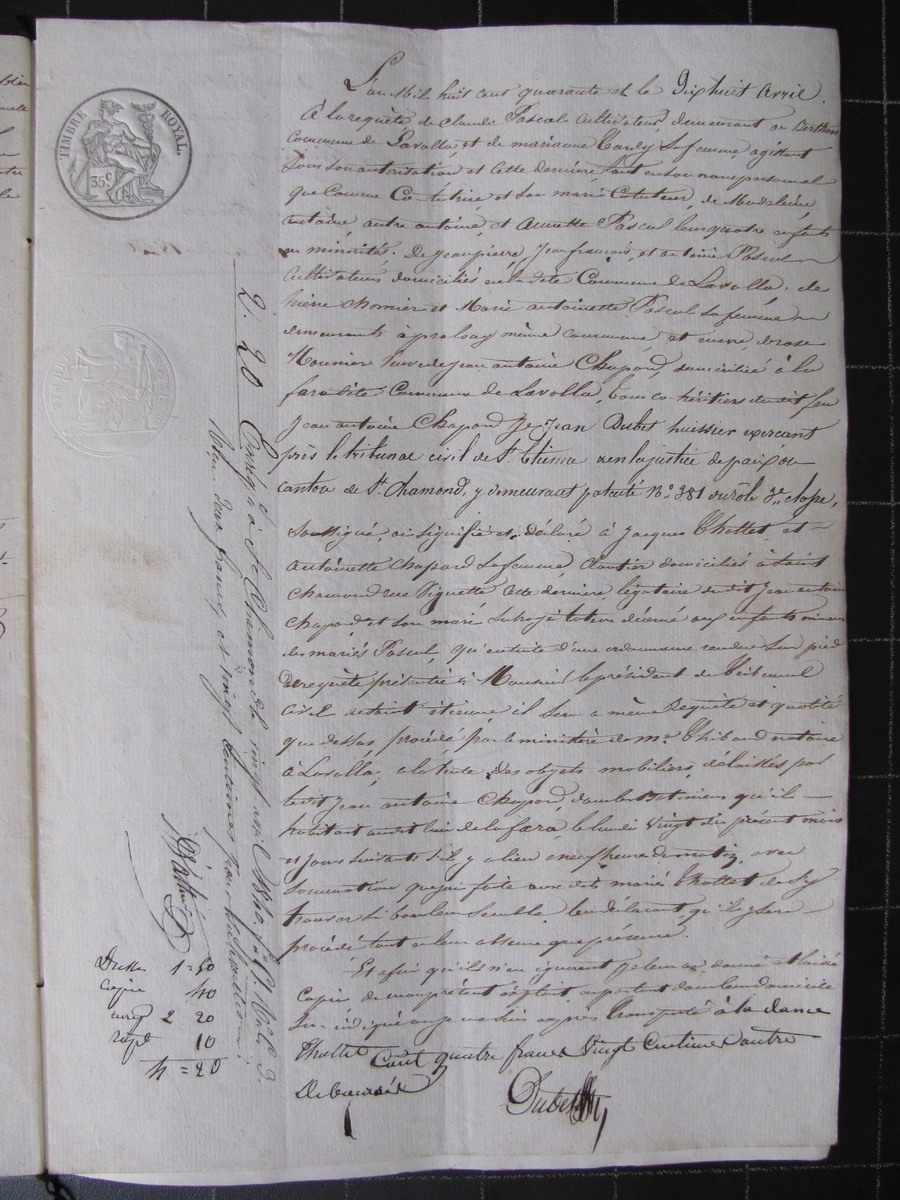 TIMBRE ROYAL.
35 c
L'an Mil huit cent quarante et le Dix huit avril.
à la requête de Claude Pascal Cultivateur, demeurant au
Commune de Lavalla, et de marianne Tardy sa femme, agissant
sous son autorisation et cette dernière tant en son nom personnel
que Comme Cotutrice et son mari Cotuteur, de Magdelaine
antoine, autre antoine, et annette Pascal leurs quatre enfants
en minorité. De jean pierre, Jean françois, et antoine Pascal
Cultivateurs domiciliés en la dite Commune de Lavalla. de
pierre Chomier et Marie antoinette Pascal sa femme
demeurants à même commune, et encore, de rose
Mounier Veuve de jean antoine Chapard, domiciliée à la
fara dite Commune de Lavalla, tous co-héritiers du dit feu
Jean antoine Chapard Je, Jean Dubet huissier exerçant
près le tribunal civil de St. Etienne en la justice de paix du
canton de St. Chamond, y demeurant patenté No. 381 du rôle 3e. classe,
Soussigné, ai signifié et déclaré à Jacques Thollet, et
antoinette Chapard sa femme, Cloutier domiciliés à Saint
chamond rue Vignette Cette dernière légataire du dit Jean antoine
Chapard et son mari Subrogé tuteur décerné aux enfants mineurs
des mariés Pascal, qu'ensuite d'une ordonnance rendue Sur pied
de requête présentée à Monsieur le président du Tribunal
civil de saint étienne il Sera a même Requête et qualité
que dessus procédé par le ministère de me. Thibaud notaire
à Lavalla, a la vente des objets mobiliers délaissés par
ledit Jean antoine Chapard dans les Batiments qu'il
habitait au dit lieu de la fara, le lundi Vingt du présent mois
et jours suivants S'il y a lieu à neuf heures du matin, avec
sommation que j'ai faite aux dits mariés Thollet de S'y
trouver Si bon leur Semble leur déclarant, qu'il y sera
procédé tant en leur absence que présence.
Et afin qu'ils n'en ignorent je leur ai donné et laissé
Copie de mon présent exploit, en parlant dans leur domicile
Sus indiqué ou je me suis exprès transporté à la dame
Thollet Cout quatre francs Vingt Centimes outre
Déboursés
Dubet
2. 20 Enreg. à St. Chamond le vingt
deux francs et vingt centimes
1=50
Copie 40
enreg 2 20
10
4=20